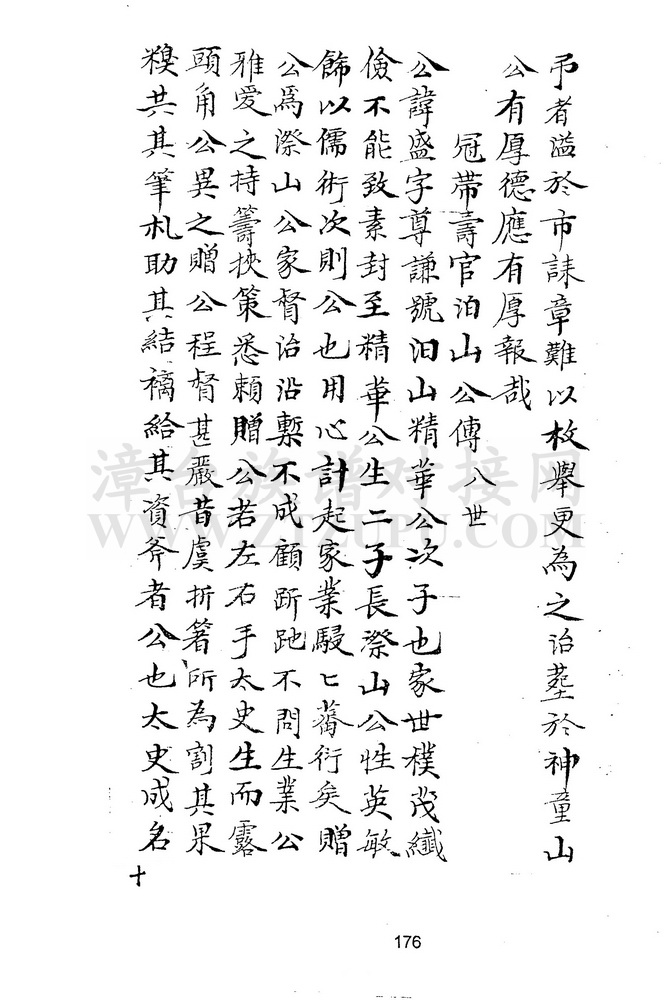 弔者溢於市誄章難以枚舉更為之治塟於神童山
公有厚德應有厚報哉
冠帶壽官泊山公傳 八世
公諱盛字尊謙號泊山精華公次子也家世樸茂纖
儉不能致素封至精華公生二子長漈山公性英敏
飾以儒術次則公也用心計起家業駸匕蕃衍矣贈
公爲漈山公家督治沿槧不成顧跅跑不問生業公
雅愛之持籌挾策悉頼贈公若左右手太史生而露
頭角公異之贈公程督甚嚴昔虞折箸所為割其果
糗共其筆札助其結褵給其資斧者公也太史成名
十
176
漳台族谱对接网
WWW.ZTZUPU.COM